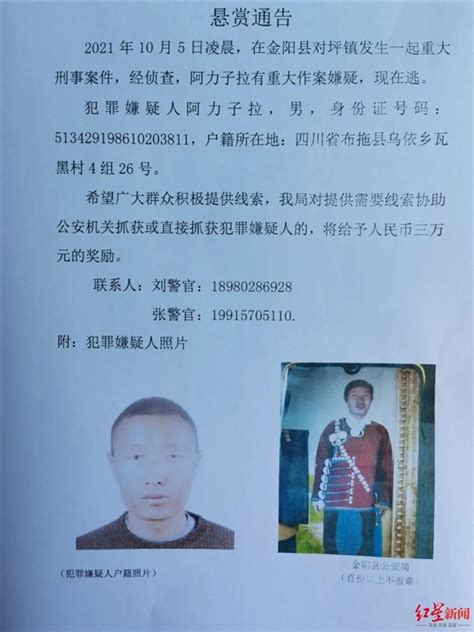 悬赏通告
2021 年 10 月 5 日凌晨，在金阳县对坪镇发生一起重大
刑事案件，经侦查，阿力子拉有重大作案嫌疑，现在逃。
犯罪嫌疑人阿力子拉，男，身份证号码：
513429198610203811，户籍所在地：四川省布拖县乌依乡瓦
黑村 4 组 26 号。
希望广大群众积极提供线索，我局对提供需要线索协助
公安机关抓获或直接抓获犯罪嫌疑人的，将给予人民币三万
元的奖励。
联系人：刘警官：18980286928
张警官：19915705110.
附：犯罪嫌疑人照片
（犯罪嫌疑人户籍照片）
金阳县公安局
（百份以上不盖章）
红星新闻